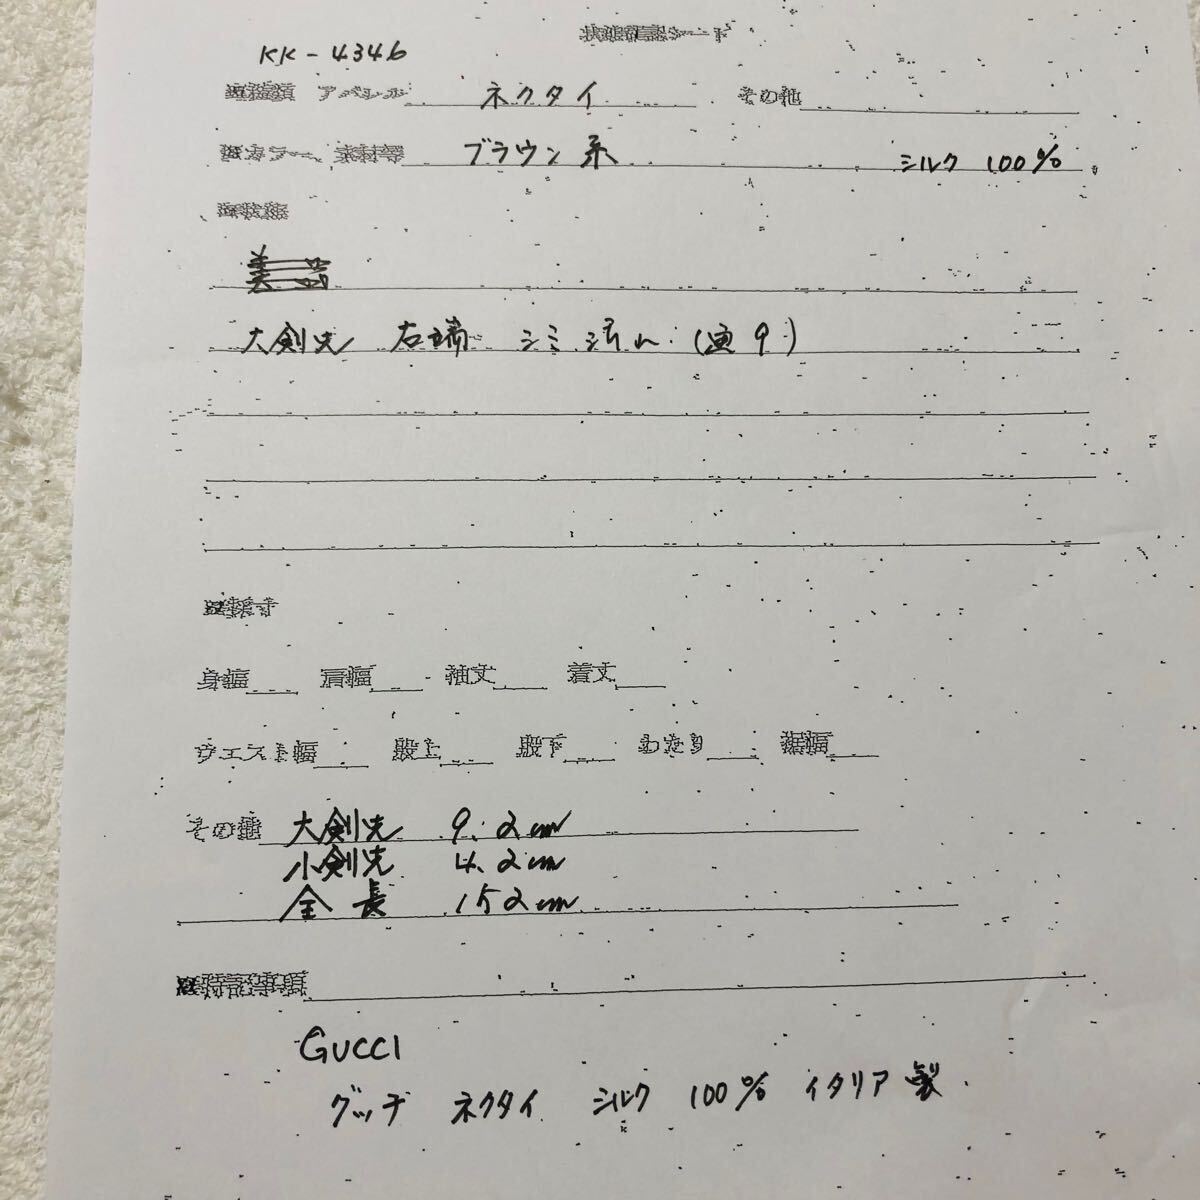 状態確認シート
KK-4346
アパレル ネクタイ その他
カラー、素材等 ブラウン系 シルク 100%
状態
美品
大剣先 右端 シミ汚れ.(画9.)
採寸
身幅 肩幅 袖丈 着丈
ウエスト幅 股上 股下 わたり 裾幅
その他 大剣先 9.2cm
小剣先 4.2cm
全長 152cm
特記事項
GUCCI
グッヂ ネクタイ シルク 100% イタリア製.